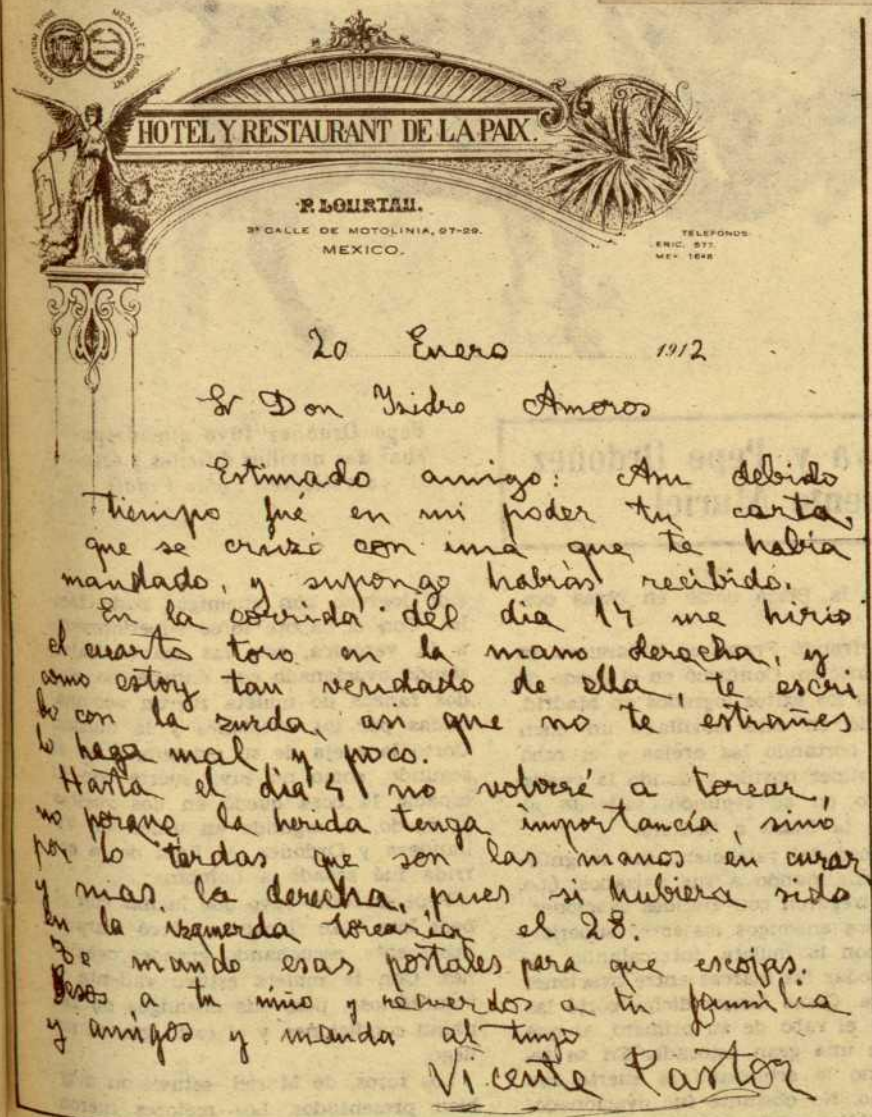 EXPOSITION PARIS
MEDAILLE D'ARGENT
HOTEL Y RESTAURANT DE LA PAIX.
P. LOURTAU.
3ª CALLE DE MOTOLINIA, 27-29.
MEXICO.
TELEFONOS
ERIC. 577.
MEX. 1648
20 Enero 1912
Sr Don Ysidro Amoros
Estimado amigo: A su debido
tiempo fué en mi poder tu carta,
que se cruzó con una que te habia
mandado, y supongo habrás recibido.
En la corrida del dia 14 me hirió
el cuarto toro en la mano derecha, y
como estoy tan vendado de ella, te escri
bo con la zurda, asi que no te estrañes
lo haga mal y poco.
Hasta el dia 4 no volveré a torear,
no porque la herida tenga importancia, sinó
por lo tardas que son las manos en curar
y mas la derecha, pues si hubiera sido
en la izquierda torearia el 28.
Te mando esas postales para que escojas.
Besos a tu niño y recuerdos a tu familia
y amigos y manda al tuyo
Vicente Pastor